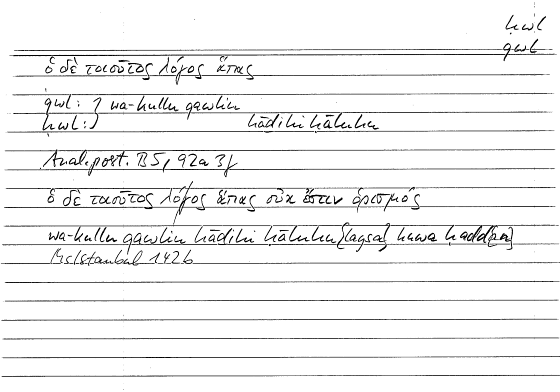 ḥwl
qwl
ὁ δὲ τοιοῦτος λόγος ἅπας
qwl : } wa-kullu qawlin
ḥwl : } hāḏihi ḥāluhu
Anal. post. B 5, 92a 3f
ὁ δὲ τοιοῦτος λόγος ἅπας οὐκ ἔστιν ὁρισμός
wa-kullu qawlin hāḏihi ḥāluhu [laysa] huwa ḥadd[an]
Ms Istanbul 142b